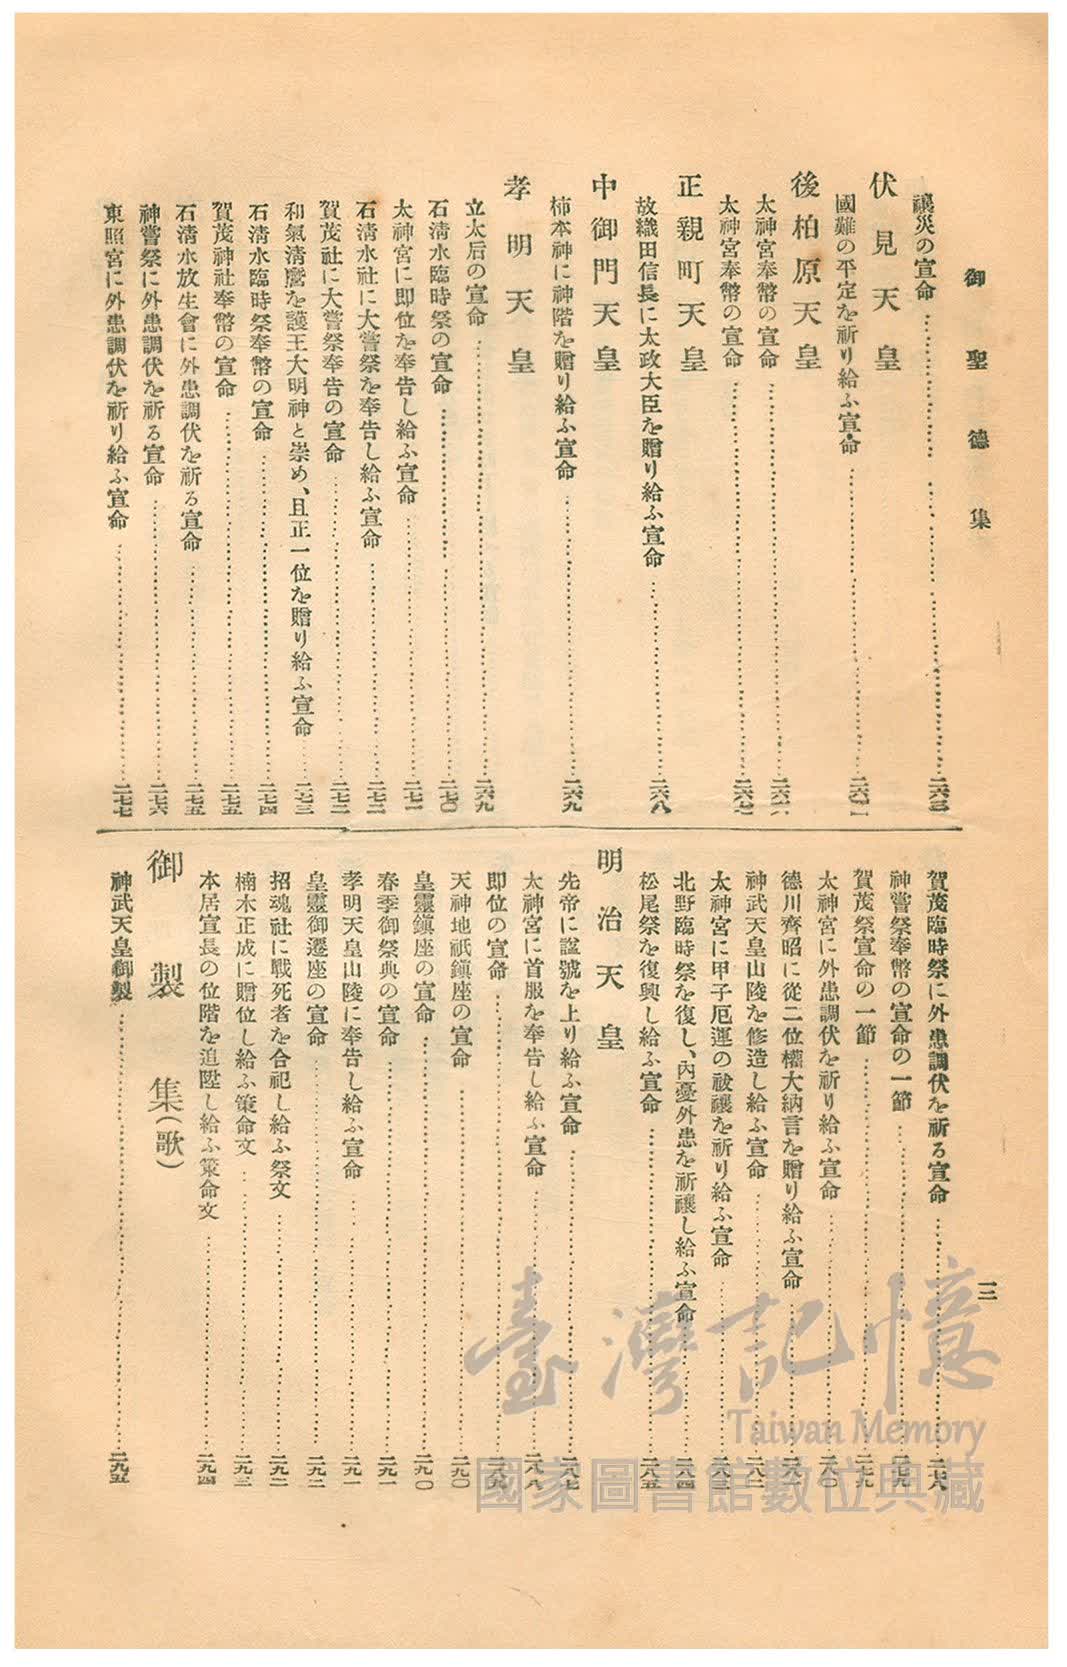 御聖德集
三
禳災の宣命……二六三
伏見天皇
國難の平定を祈り給ふ宣命
後柏原天皇
太神宮奉幣の宣命……二六六
太神宮奉幣の宣命……二六七
正親町天皇
故織田信長に太政大臣を贈り給ふ宣命……二六八
中御門天皇
柿本神に神階を贈り給ふ宣命……二六九
孝明天皇
立太后の宣命……二六九
石淸水臨時祭の宣命……二七〇
太神宮に即位を奉告し給ふ宣命……二七一
石淸水社に大嘗祭を奉告し給ふ宣命……二七二
賀茂社に大嘗祭奉告の宣命……二七二
和氣淸麿を護王大明神と崇め、且正一位を贈り給ふ宣命……二七三
石淸水臨時祭奉幣の宣命……二七四
賀茂神社奉幣の宣命……二七五
石淸水放生會に外患調伏を祈る宣命……二七五
神嘗祭に外患調伏を祈る宣命……二七六
東照宮に外患調伏を祈り給ふ宣命……二七七
賀茂臨時祭に外患調伏を祈る宣命……二七八
神嘗祭奉幣の宣命の一節……二七九
賀茂祭宣命の一節……二七九
太神宮に外患調伏を祈り給ふ宣命……二八〇
德川齊昭に從二位權大納言を贈り給ふ宣命
神武天皇山陵を修造し給ふ宣命
太神宮に甲子厄運の祓禳を祈り給ふ宣命
北野臨時祭を復し、內憂外患を祈禳し給ふ宣命……二八四
松尾祭を復興し給ふ宣命……二八五
明治天皇
先帝に諡號を上り給ふ宣命……二八七
太神宮に首服を奉告し給ふ宣命……二八八
即位の宣命……二八九
天神地祇鎭座の宣命……二九〇
皇靈鎭座の宣命……二九〇
春季御祭典の宣命……二九一
孝明天皇山陵に奉告し給ふ宣命……二九一
皇靈御遷座の宣命……二九二
招魂社に戰死者を合祀し給ふ祭文……二九二
楠木正成に贈位し給ふ策命文……二九三
本居宣長の位階を追陞し給ふ策命文……二九四
御製集(歌)
神武天皇御製……二九五
臺灣記憶
Taiwan Memory
國家圖書館數位典藏